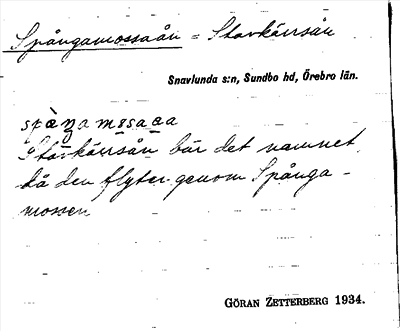 Spångamossaån = Starkärrsån
Snavlunda s:n, Sundbo hd, Örebro län.
Starkärrsån bär det namnet,
då den flyter genom Spånga-
mossen
GÖRAN ZETTERBERG 1934.